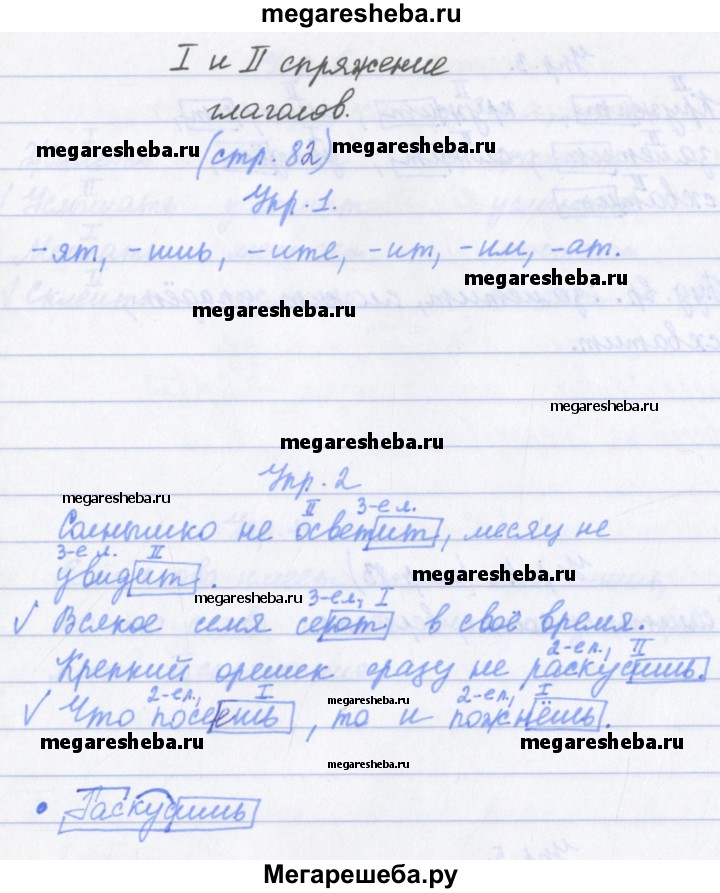 megaresheba.ru
I и II спряжение
глаголов.
megaresheba.ru (стр. 82) megaresheba.ru
Упр. 1.
-ят, -ишь, -ите, -ит, -им, -ат.
megaresheba.ru
megaresheba.ru
megaresheba.ru
megaresheba.ru
Упр. 2
megaresheba.ru
II 3-е л.
Солнышко не осветит, месяц не
3-е л. II
увидит.
megaresheba.ru
megaresheba.ru
3-е л., I
√ Всякое семя сеют в своё время.
2-е л., II
Крепкий орешек сразу не раскусишь.
2-е л., I megaresheba.ru 2-е л., I
√ Что посеешь, то и пожнёшь.
megaresheba.ru megaresheba.ru
megaresheba.ru
• Раскусишь
Мегарешеба.ру